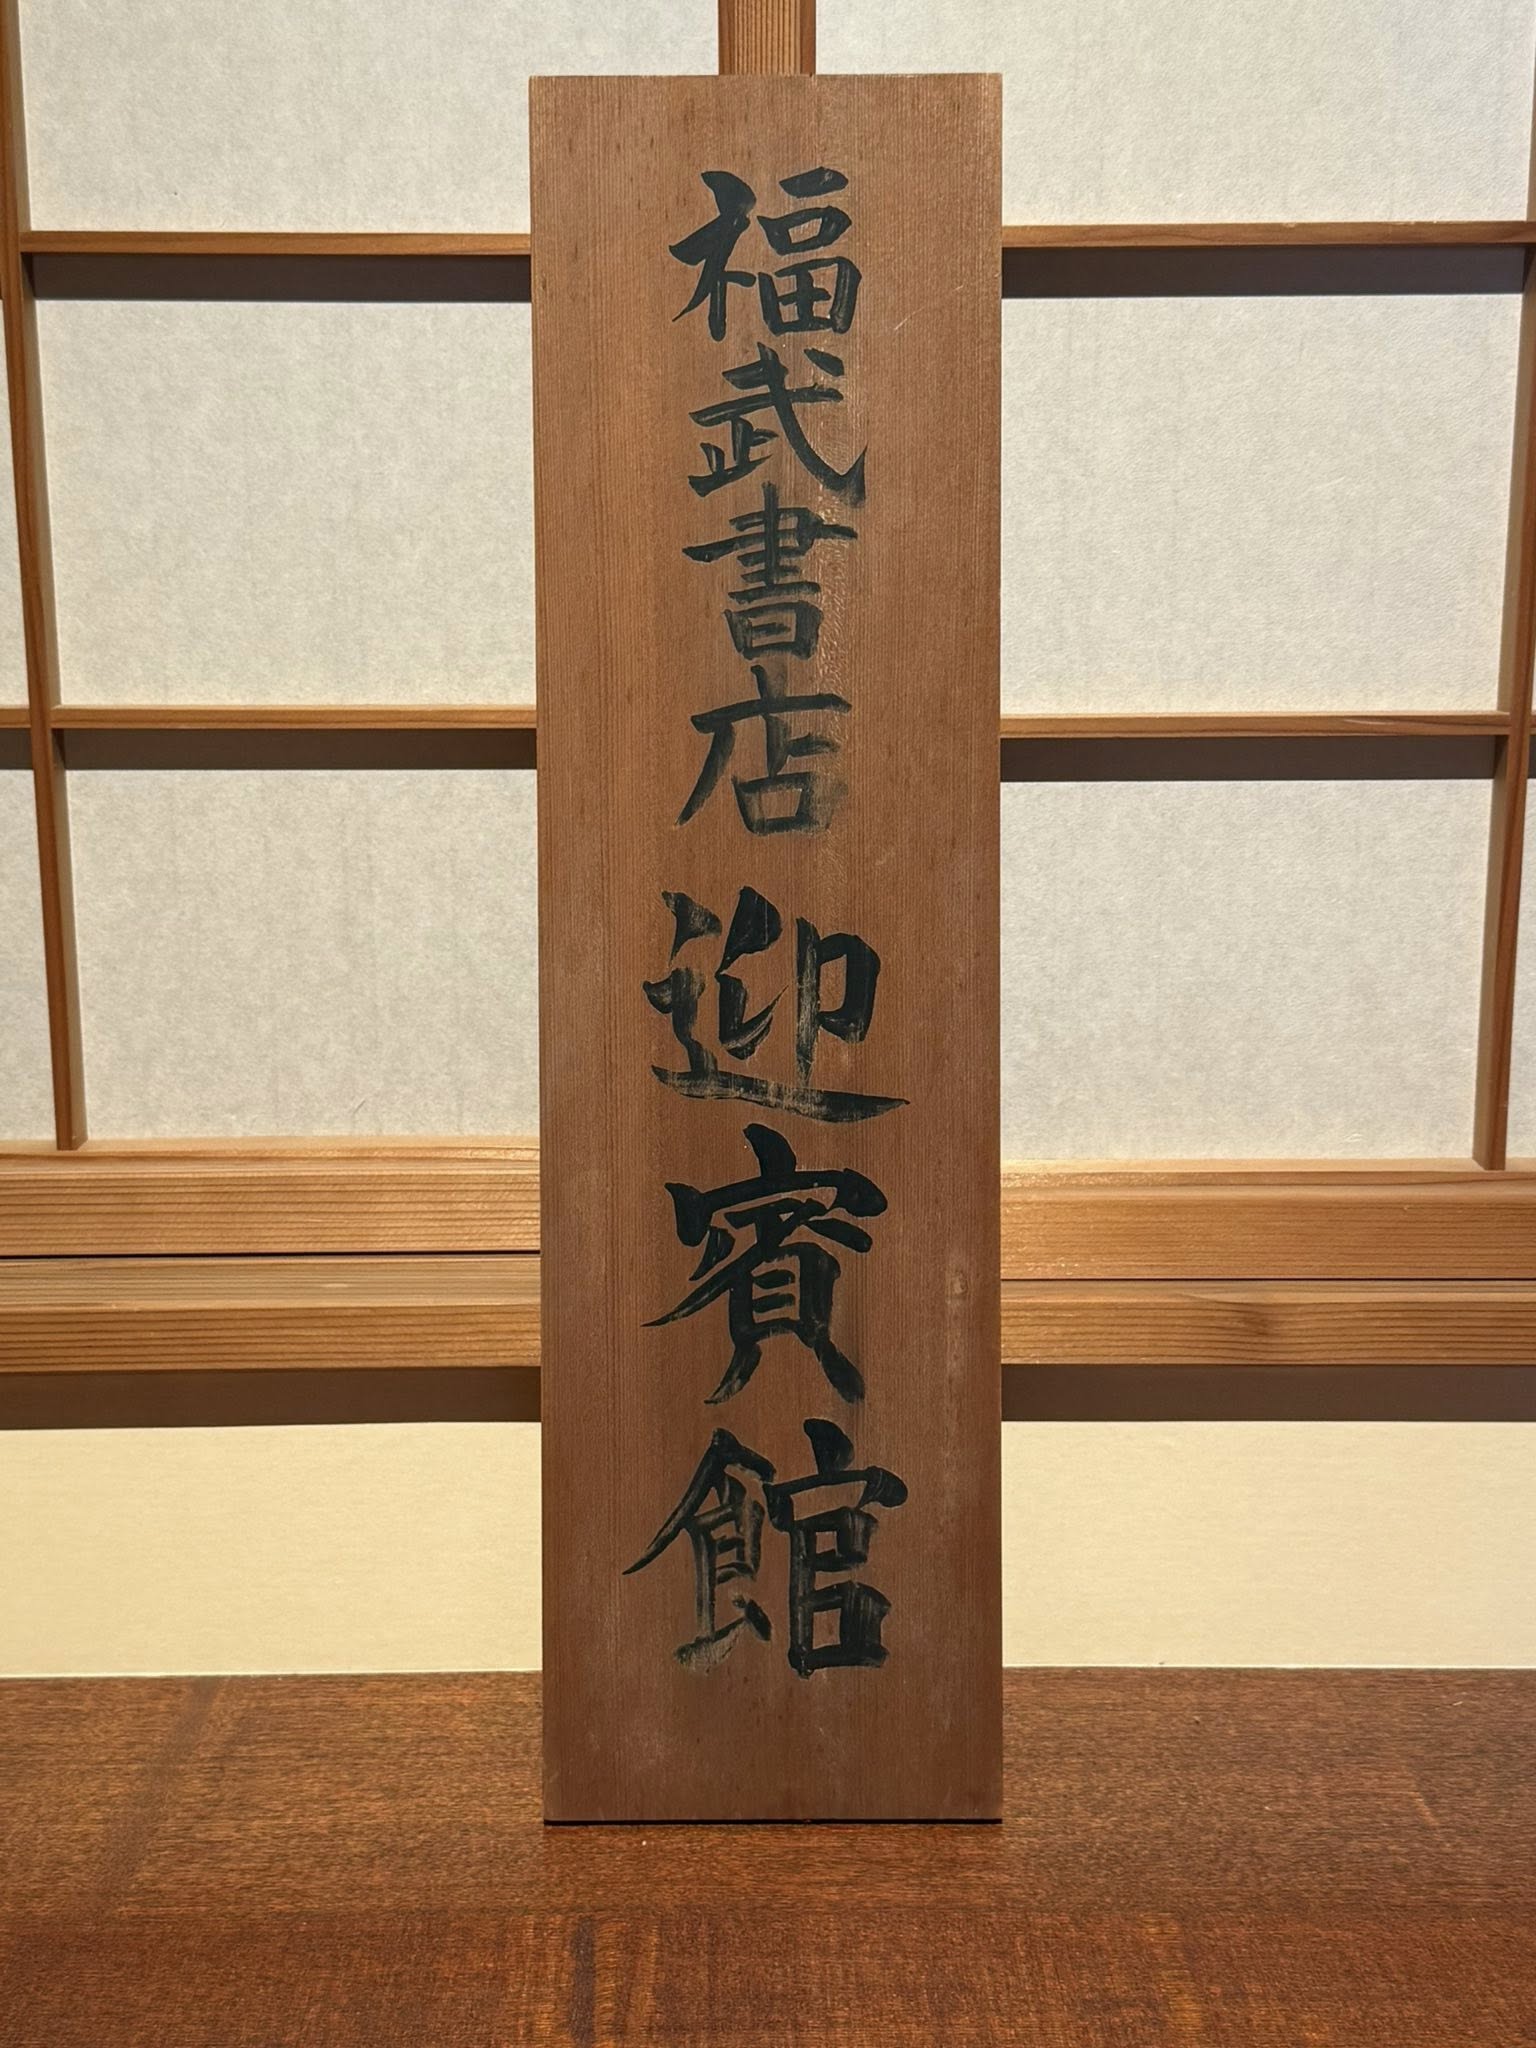 福武書店 迎賓館